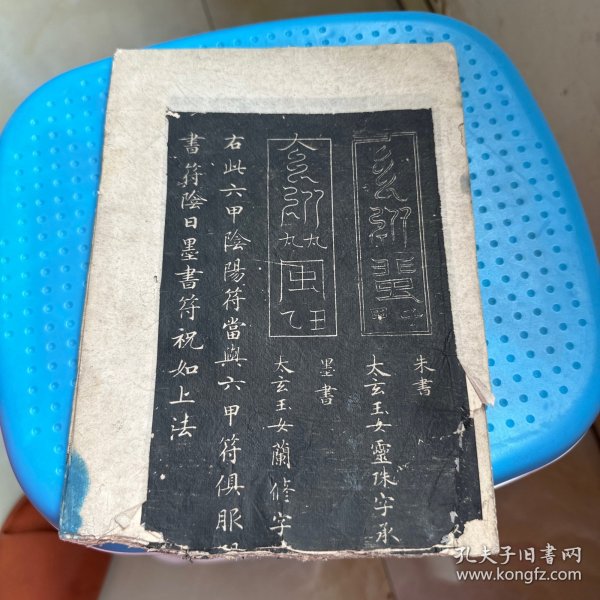 朱書
太玄玉女靈珠字承
墨書
太玄玉女蘭脩字
右此六甲陰陽符當與六甲符俱服
書符陰日墨書符祝如上法
孔夫子旧書网
www.kongfz.com